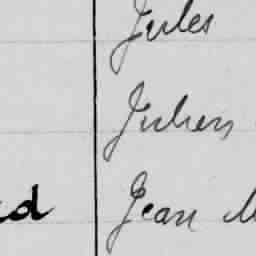 Jules
Julien
Jean